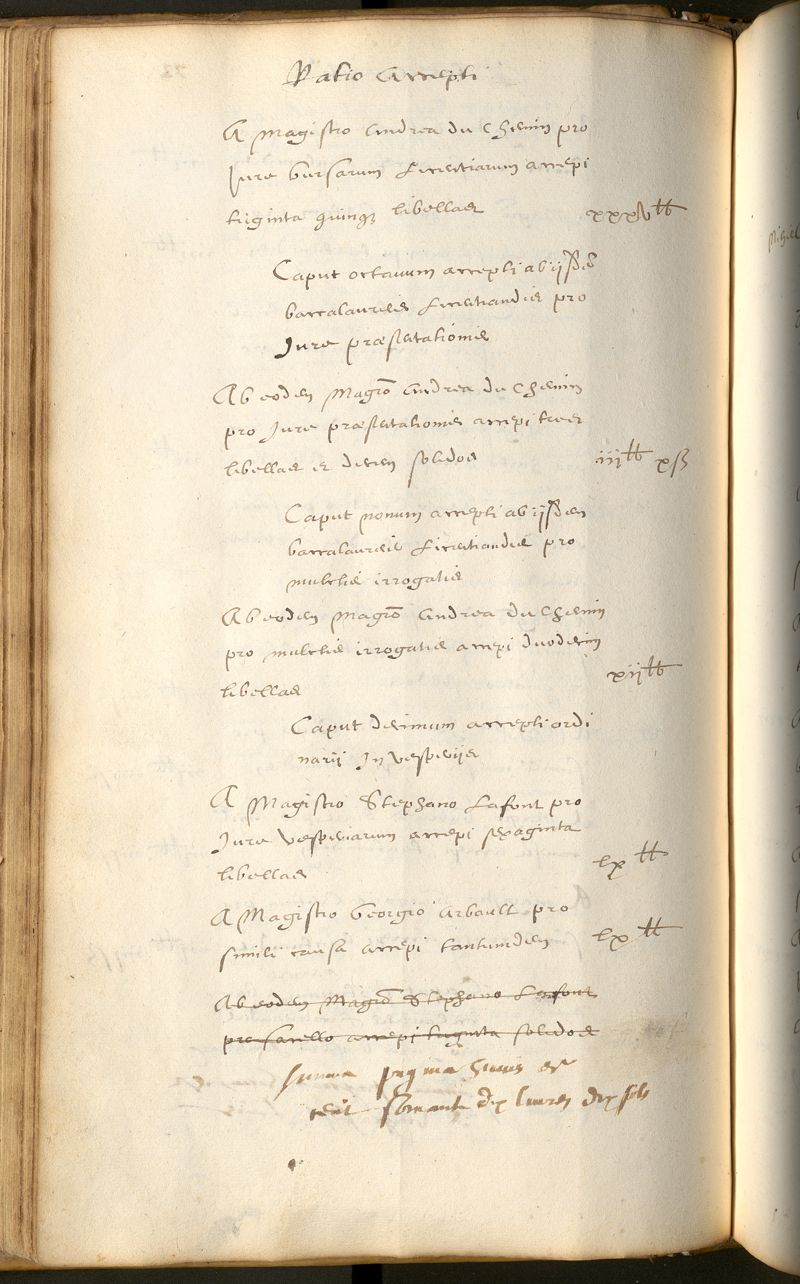 Ratio Accepti
A Magistro Andrea du Chemin pro
Jure bursarum Licentiarum accepi
triginta quinq; libellas xxxv lb
Caput octavum accepti ab iisdē
baccalaureis Licentiandis pro
Jure præsentationis
Ab eodem Magrō Andrea du Chemin
pro Jure præsentationis accepi tres
libellas et decem solidos iij lb x ß
Caput nonum accepti ab iisdem
baccalaureis Licentiandis pro
mulctis irrogatis
Ab eodem Magrō Andrea du Chemin
pro mulctis irrogatis accepi duodecim
libellas xij lb
Caput decimum accepti ordi
narii In vesperiis
A Magistro Stephano Lafont pro
Jure vesperiarum accepi sexaginta
libellas lx lb
A Magistro Georgio Arbault pro
simili causa accepi tantumdem lx lb
Ab eodem Magrō Stephano Lafont
pro sacello accepi triginta solidos
summa paginæ huius est
cent soixante dix livres dix sols